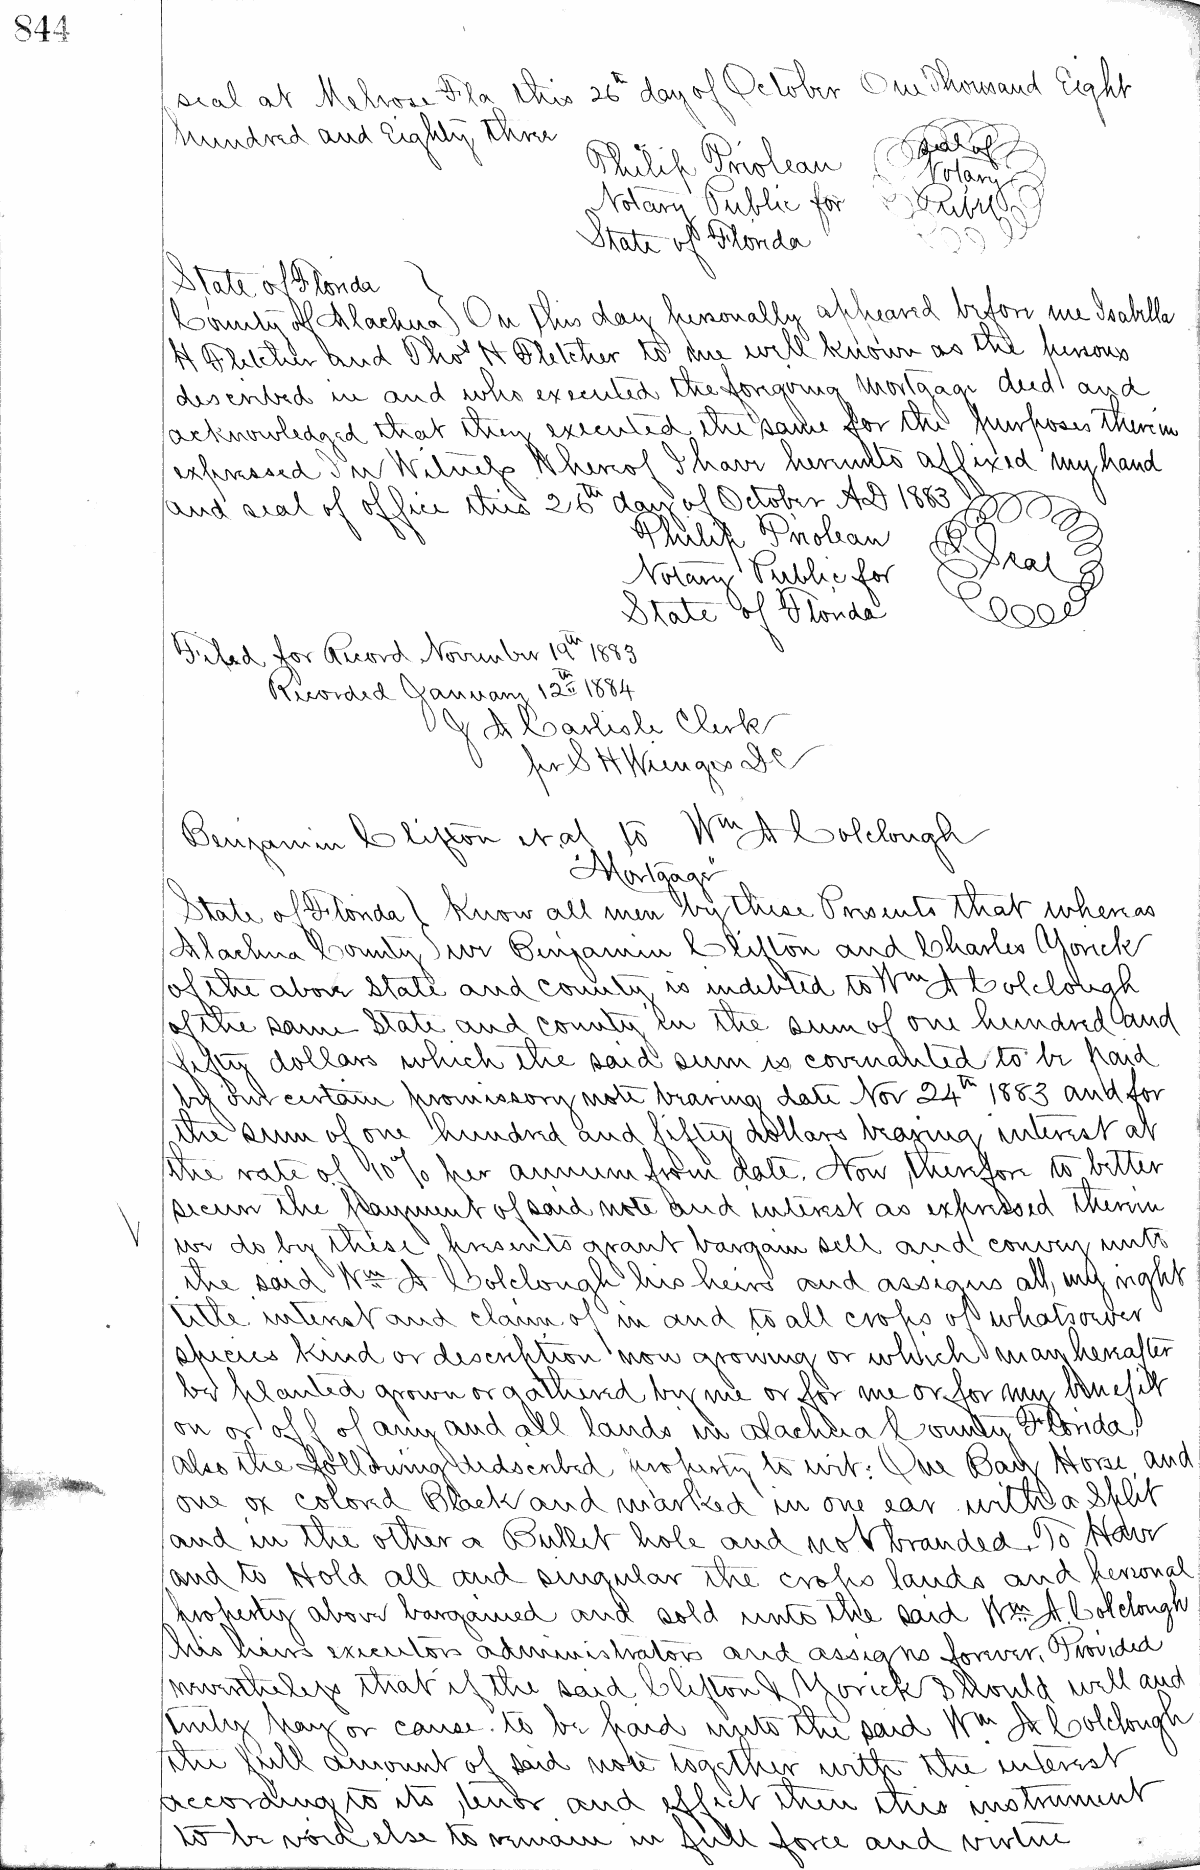 844
seal at Melrose Fla this 26th day of October One Thousand Eight
hundred and Eighty three
Philip Priolean
Notary Public for
State of Florida
Seal of
Notary
Public
State of Florida }
County of Alachua } On this day personally appeared before me Isabella
H Fletcher and Thos H Fletcher to me well known as the persons
described in and who executed the foregoing Mortgage deed and
acknowledged that they executed the same for the purposes therein
expressed In Witness Whereof I have hereunto affixed my hand
and seal of office this 26th day of October AD 1883
Philip Priolean
Notary Public for
State of Florida
Seal
Filed for Record November 19th 1883
Recorded January 12th 1884
J A Carlisle Clerk
per S H Wienges DC
Benjamin Clifton et al to Wm A Colclough
"Mortgage"
State of Florida } Know all men by these Presents that whereas
Alachua County } we Benjamin Clifton and Charles Yorick
of the above State and county is indebted to Wm A Colclough
of the same State and county in the sum of one hundred and
fifty dollars which the said sum is covenanted to be paid
by our certain promissory note bearing date Nov 24th 1883 and for
the sum of one hundred and fifty dollars bearing interest at
the rate of 10% per annum from date. Now therefore to better
secure the payment of said note and interest as expressed therein
we do by these presents grant bargain sell and convey unto
the said Wm A Colclough his heirs and assigns all, my right
title interest and claim of in and to all crops of whatsoever
species kind or description now growing or which may hereafter
be planted grown or gathered by me or for me or for my benefit
on or off of any and all lands in Alachua County Florida,
also the following didscribed property to wit: One Bay Horse and
one ox colored Black and marked in one ear with a Split
and in the other a Bullet hole and not branded. To Have
and to Hold all and singular the crops lands and personal
property above bargained and sold unto the said Wm A. Colclough
his heirs executors administrators and assigns forever. Provided
nevertheless that if the said Clifton & Yorick Should well and
truly pay or cause to be paid unto the said Wm A Colclough
the full amount of said note together with the interest
according to its tenor and effect then this instrument
to be void else to remain in full force and virtue